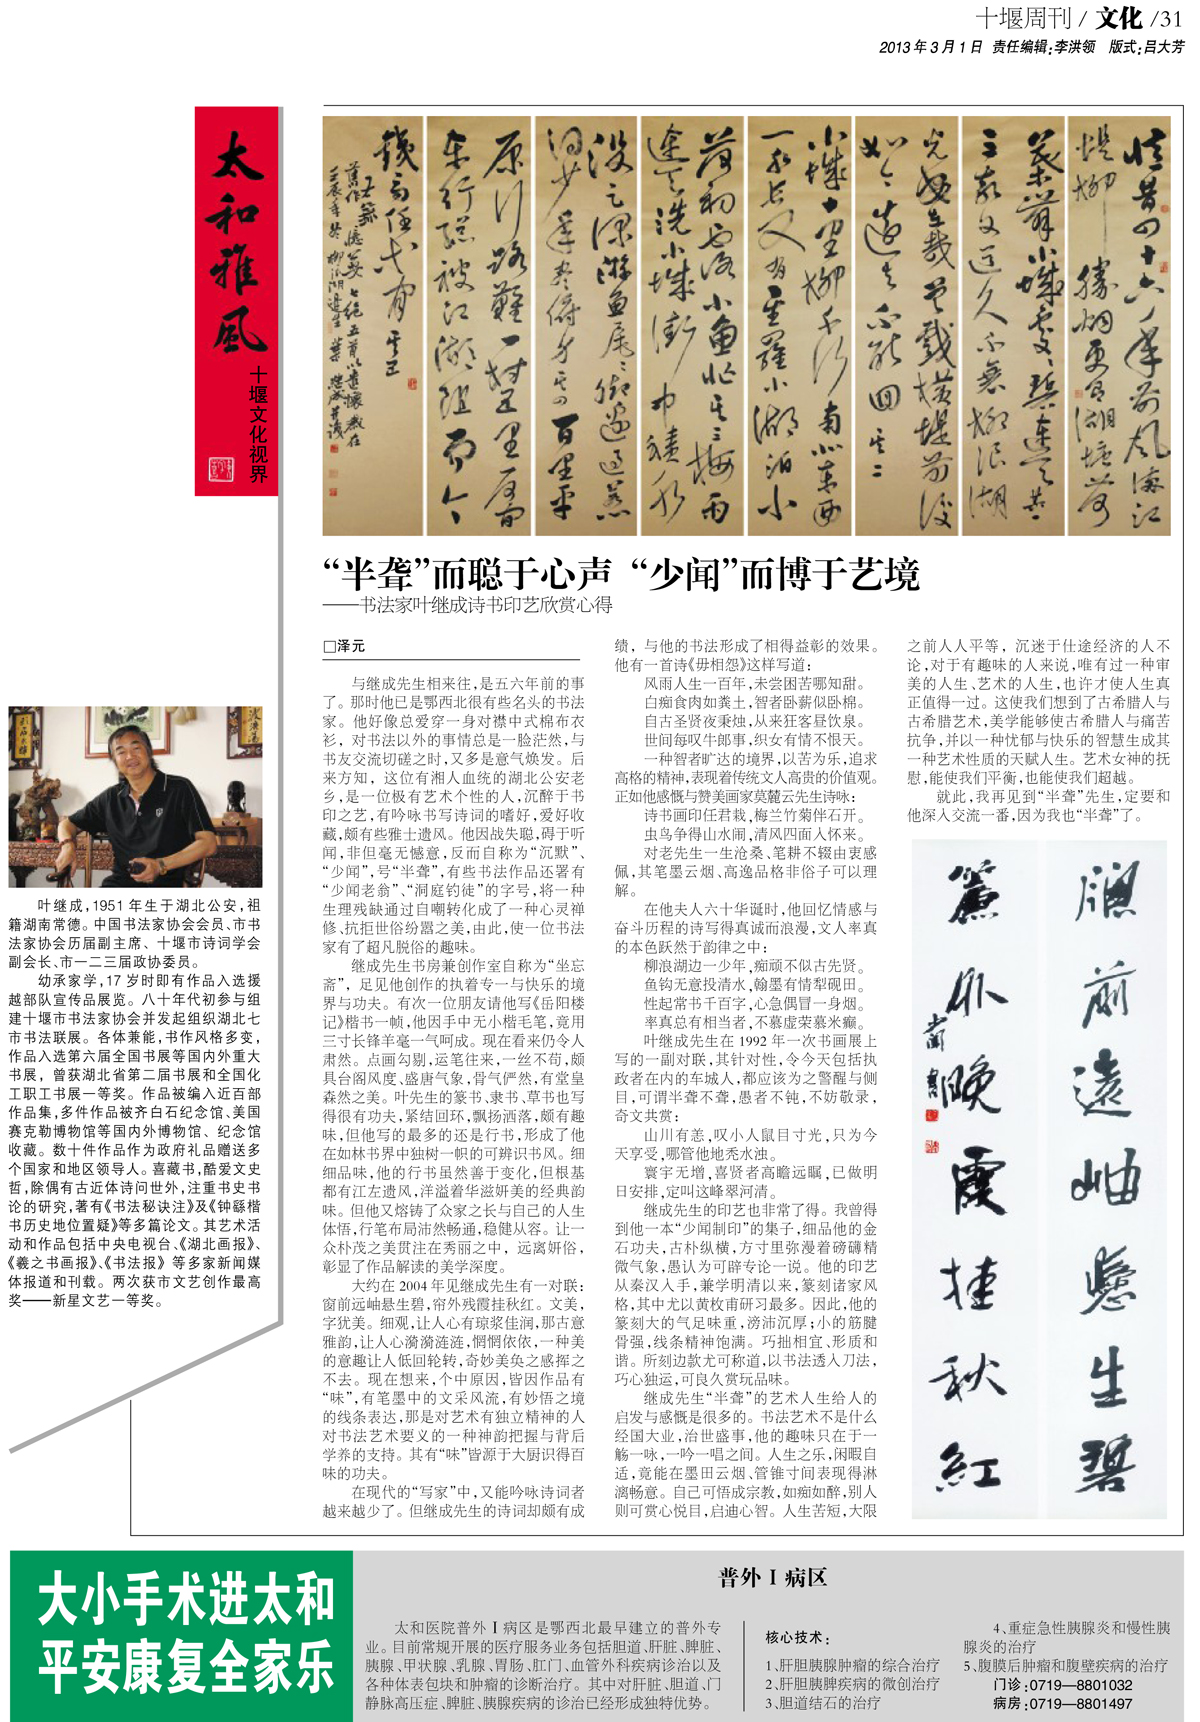 十堰周刊 / 文化 /31
2013 年 3 月 1 日 责任编辑：李洪领 版式：吕大芳
太和雅風
十堰文化视界
“半聋”而聪于心声 “少闻”而博于艺境
——书法家叶继成诗书印艺欣赏心得
□泽元
与继成先生相来往，是五六年前的事
了。那时他已是鄂西北很有些名头的书法
家。他好像总爱穿一身对襟中式棉布衣
衫，对书法以外的事情总是一脸茫然，与
书友交流切磋之时，又多是意气焕发。后
来方知，这位有湘人血统的湖北公安老
乡，是一位极有艺术个性的人，沉醉于书
印之艺，有吟咏书写诗词的嗜好，爱好收
藏，颇有些雅士遗风。他因战失聪，碍于听
闻，非但毫无憾意，反而自称为“沉默”、
“少闻”，号“半聋”，有些书法作品还署有
“少闻老翁”、“洞庭钓徒”的字号，将一种
生理残缺通过自嘲转化成了一种心灵禅
修、抗拒世俗纷嚣之美，由此，使一位书法
家有了超凡脱俗的趣味。
继成先生书房兼创作室自称为“坐忘
斋”，足见他创作的执着专一与快乐的境
界与功夫。有次一位朋友请他写《岳阳楼
记》楷书一帧，他因手中无小楷毛笔，竟用
三寸长锋羊毫一气呵成。现在看来仍令人
肃然。点画勾剔，运笔往来，一丝不苟，颇
具台阁风度、盛唐气象，骨气俨然，有堂皇
森然之美。叶先生的篆书、隶书、草书也写
得很有功夫，紧结回环，飘扬洒落，颇有趣
味，但他写的最多的还是行书，形成了他
在如林书界中独树一帜的可辨识书风。细
细品味，他的行书虽然善于变化，但根基
都有江左遗风，洋溢着华滋妍美的经典韵
味。但他又熔铸了众家之长与自己的人生
体悟，行笔布局沛然畅通，稳健从容。让一
众朴茂之美贯注在秀丽之中，远离妍俗，
彰显了作品解读的美学深度。
大约在 2004 年见继成先生有一对联：
窗前远岫悬生碧，帘外残霞挂秋红。文美，
字犹美。细观，让人心有琼浆佳润，那古意
雅韵，让人心漪漪涟涟，惘惘依依，一种美
的意趣让人低回轮转，奇妙美奂之感挥之
不去。现在想来，个中原因，皆因作品有
“味”，有笔墨中的文采风流，有妙悟之境
的线条表达，那是对艺术有独立精神的人
对书法艺术要义的一种神韵把握与背后
学养的支持。其有“味”皆源于大厨识得百
味的功夫。
在现代的“写家”中，又能吟咏诗词者
越来越少了。但继成先生的诗词却颇有成
绩，与他的书法形成了相得益彰的效果。
他有一首诗《毋相怨》这样写道：
风雨人生一百年，未尝困苦哪知甜。
白痴食肉如粪土，智者卧薪似卧棉。
自古圣贤夜秉烛，从来狂客昼饮泉。
世间每叹牛郎事，织女有情不恨天。
一种智者旷达的境界，以苦为乐，追求
高格的精神，表现着传统文人高贵的价值观。
正如他感慨与赞美画家莫麓云先生诗咏：
诗书画印任君栽，梅兰竹菊伴石开。
虫鸟争得山水闹，清风四面入怀来。
对老先生一生沧桑、笔耕不辍由衷感
佩，其笔墨云烟、高逸品格非俗子可以理
解。
在他夫人六十华诞时，他回忆情感与
奋斗历程的诗写得真诚而浪漫，文人率真
的本色跃然于韵律之中：
柳浪湖边一少年，痴顽不似古先贤。
鱼钩无意投清水，翰墨有情犁砚田。
性起常书千百字，心急偶冒一身烟。
率真总有相当者，不慕虚荣慕米癫。
叶继成先生在 1992 年一次书画展上
写的一副对联，其针对性，令今天包括执
政者在内的车城人，都应该为之警醒与侧
目，可谓半聋不聋，愚者不钝，不妨敬录，
奇文共赏：
山川有恙，叹小人鼠目寸光，只为今
天享受，哪管他地秃水浊。
寰宇无增，喜贤者高瞻远瞩，已做明
日安排，定叫这峰翠河清。
继成先生的印艺也非常了得。我曾得
到他一本“少闻制印”的集子，细品他的金
石功夫，古朴纵横，方寸里弥漫着磅礴精
微气象，愚认为可辟专论一说。他的印艺
从秦汉入手，兼学明清以来，篆刻诸家风
格，其中尤以黄枚甫研习最多。因此，他的
篆刻大的气足味重，滂沛沉厚；小的筋腱
骨强，线条精神饱满。巧拙相宜、形质和
谐。所刻边款尤可称道，以书法透入刀法，
巧心独运，可良久赏玩品味。
继成先生“半聋”的艺术人生给人的
启发与感慨是很多的。书法艺术不是什么
经国大业，治世盛事，他的趣味只在于一
觞一咏，一吟一唱之间。人生之乐，闲暇自
适，竟能在墨田云烟、管锥寸间表现得淋
漓畅意。自己可悟成宗教，如痴如醉，别人
则可赏心悦目，启迪心智。人生苦短，大限
之前人人平等，沉迷于仕途经济的人不
论，对于有趣味的人来说，唯有过一种审
美的人生、艺术的人生，也许才使人生真
正值得一过。这使我们想到了古希腊人与
古希腊艺术，美学能够使古希腊人与痛苦
抗争，并以一种忧郁与快乐的智慧生成其
一种艺术性质的天赋人生。艺术女神的抚
慰，能使我们平衡，也能使我们超越。
就此，我再见到“半聋”先生，定要和
他深入交流一番，因为我也“半聋”了。
窗前遠岫懸生碧
簾外晚霞挂秋紅
叶继成，1951 年生于湖北公安，祖
籍湖南常德。中国书法家协会会员、市书
法家协会历届副主席、十堰市诗词学会
副会长、市一二三届政协委员。
幼承家学，17 岁时即有作品入选援
越部队宣传品展览。八十年代初参与组
建十堰市书法家协会并发起组织湖北七
市书法联展。各体兼能，书作风格多变，
作品入选第六届全国书展等国内外重大
书展，曾获湖北省第二届书展和全国化
工职工书展一等奖。作品被编入近百部
作品集，多件作品被齐白石纪念馆、美国
赛克勒博物馆等国内外博物馆、纪念馆
收藏。数十件作品作为政府礼品赠送多
个国家和地区领导人。喜藏书，酷爱文史
哲，除偶有古近体诗问世外，注重书史书
论的研究，著有《书法秘诀注》及《钟繇楷
书历史地位置疑》等多篇论文。其艺术活
动和作品包括中央电视台、《湖北画报》、
《羲之书画报》、《书法报》等多家新闻媒
体报道和刊载。两次获市文艺创作最高
奖——新星文艺一等奖。
大小手术进太和
平安康复全家乐
普外 I 病区
太和医院普外 I 病区是鄂西北最早建立的普外专
业。目前常规开展的医疗服务业务包括胆道、肝脏、脾脏、
胰腺、甲状腺、乳腺、胃肠、肛门、血管外科疾病诊治以及
各种体表包块和肿瘤的诊断治疗。其中对肝脏、胆道、门
静脉高压症、脾脏、胰腺疾病的诊治已经形成独特优势。
核心技术：
1、肝胆胰腺肿瘤的综合治疗
2、肝胆胰脾疾病的微创治疗
3、胆道结石的治疗
4、重症急性胰腺炎和慢性胰
腺炎的治疗
5、腹膜后肿瘤和腹壁疾病的治疗
门诊：0719—8801032
病房：0719—8801497